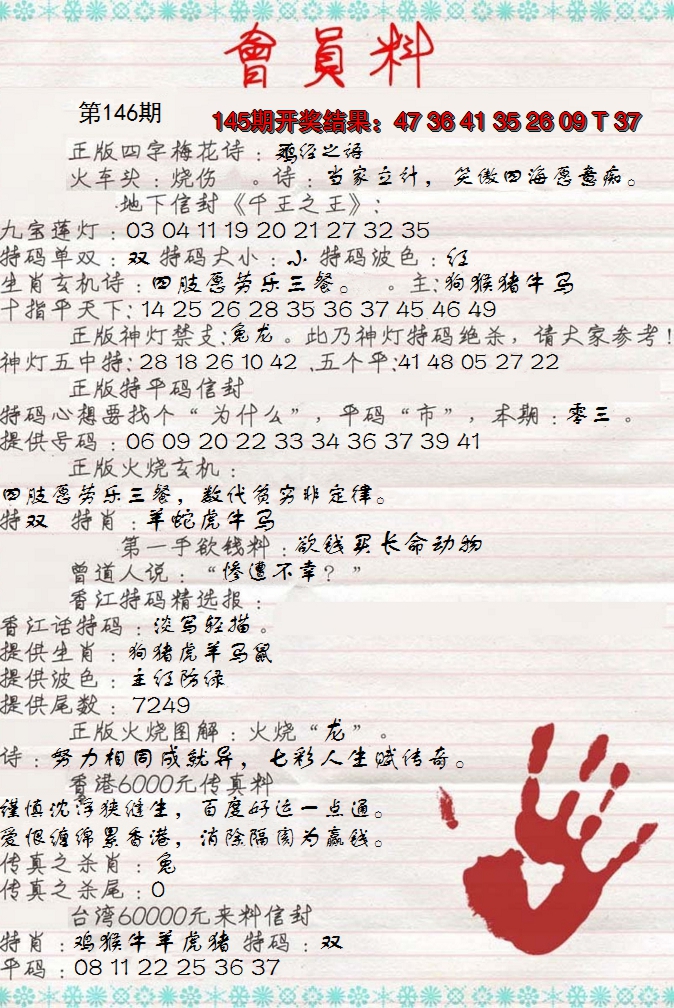 會員料
第146期
145期开奖结果：47 36 41 35 26 09 T 37
正版四字梅花诗：鸡经之语
火车头：烧伤 。诗：当家立计，笑傲四海愿意痴。
地下信封《千王之王》:
九宝莲灯：03 04 11 19 20 21 27 32 35
特码单双：双 特码大小：小 特码波色：红
生肖玄机诗：四肢愿劳乐三餐。 。主:狗猴猪牛马
十指平天下: 14 25 26 28 35 36 37 45 46 49
正版神灯禁支:兔龙。此乃神灯特码绝杀，请大家参考!
神灯五中特: 28 18 26 10 42 .五个平:41 48 05 27 22
正版特平码信封
特码心想要找个“为什么”，平码“市”，本期：零三 。
提供号码：06 09 20 22 33 34 36 37 39 41
正版火烧玄机：
四肢愿劳乐三餐，数代贫穷非定律。
特双 特肖：羊蛇虎牛马
第一手欲钱料：欲钱买长命动物
曾道人说：“惨遭不幸？”
香江特码精选报：
香江话特码：淡写轻描。
提供生肖：狗猪虎羊马鼠
提供波色：主红防绿
提供尾数：7249
正版火烧图解：火烧“龙”。
诗：努力相同成就异，七彩人生赋传奇。
香港6000元传真料
谨慎沈浮狭缝生，百度好运一点通。
爱恨缠绵累香港，消除隔阂为赢钱。
传真之杀肖：兔
传真之杀尾：0
台湾60000元来料信封
特肖：鸡猴牛羊虎猪 特码：双
平码：08 11 22 25 36 37